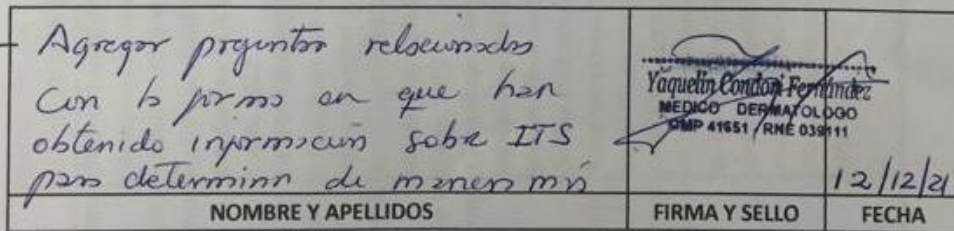 Agregar preguntas relacionados
Con la forma en que han
obtenido información sobre ITS
para determinar de manera más
Yaquelin Condori Fernández
MEDICO DERMATOLOGO
CMP 41651 / RNE 039111
12/12/21
NOMBRE Y APELLIDOS FIRMA Y SELLO FECHA